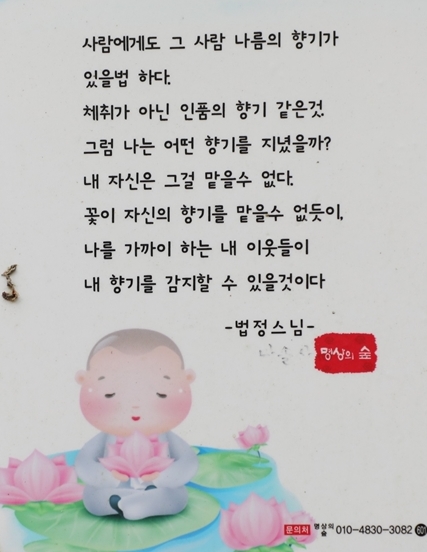 사람에게도 그 사람 나름의 향기가
있을법 하다.
체취가 아닌 인품의 향기 같은것.
그럼 나는 어떤 향기를 지녔을까?
내 자신은 그걸 맡을수 없다.
꽃이 자신의 향기를 맡을수 없듯이,
나를 가까이 하는 내 이웃들이
내 향기를 감지할 수 있을것이다
-법정스님-
명상의 숲
문의처 명상의 숲 010-4830-3082